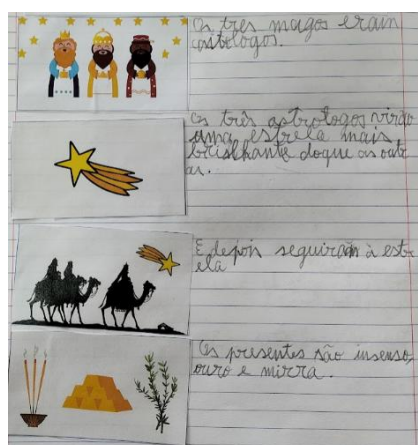 Os três magos eram
astólogos.
Os três astrologos virão
uma estrela mais
brislhante doque as outr
as.
E depois seguiram à estr
ela
Os presentes são insenso,
ouro e mirra.